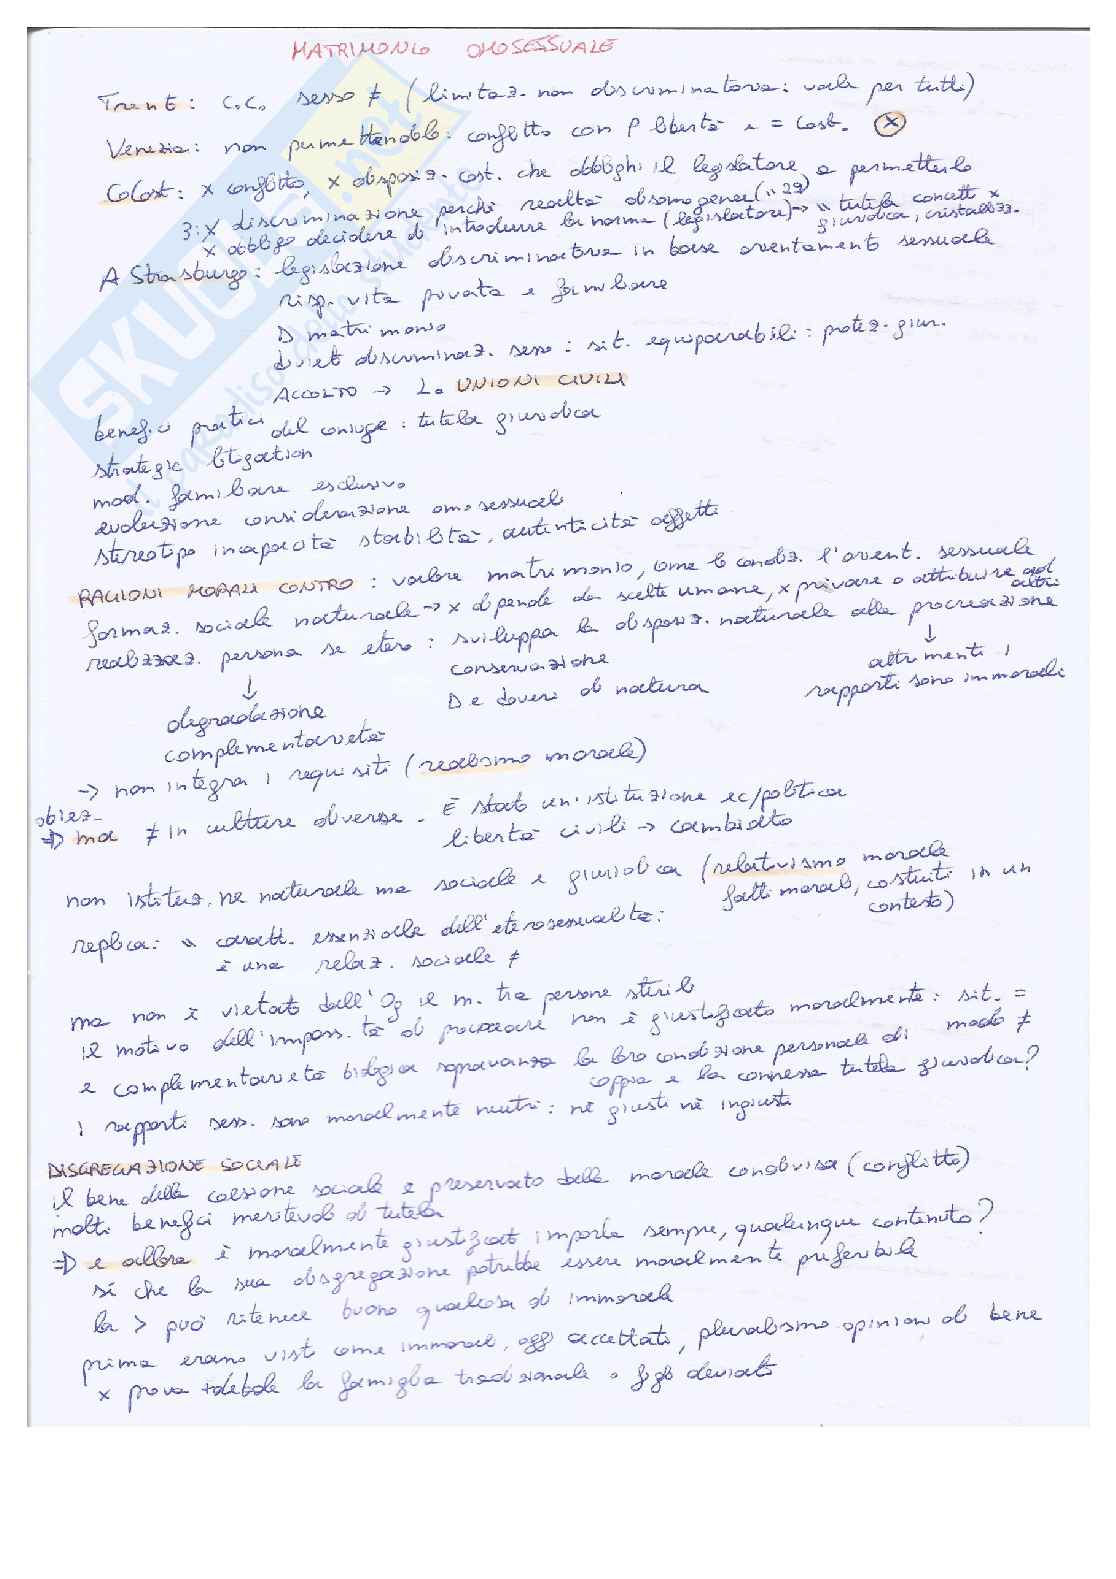 MATRIMONIO OMOSESSUALE
Trent: c.c. sesso ≠ (limitaz. non discriminatoria: vale per tutti)
Venezia: non permettendolo: conflitto con P libertà e = Cost. ⊗
CoCost: x conflitto, x disposiz. cost. che obblighi il legislatore a permetterlo
3: x discriminazione perché realtà disomogenee (" 29)
x obbligo decidere di introdurre la norma (legislatore) → " tutela concetti x
giuridica, cristallizz.
A Strasburgo: legislazione discriminatoria in base orientamento sessuale
risp. vita privata e familiare
D matrimonio
divieto discriminaz. sesso: sit. equiparabili: protez. giur.
ACCOLTO → L. UNIONI CIVILI
benefici pratici del coniuge: tutela giuridica
strategic litigation
mod. familiare esclusivo
evoluzione considerazione omosessuali
stereotipo incapacità stabilità, autenticità affetti
RAGIONI MORALI CONTRO: valore matrimonio, come lo condiz. l'orient. sessuale
formaz. sociale naturale → x dipende da scelte umane, x privare o attribuire ad
altri
realizzaz. persona se etero: sviluppa la disposiz. naturale alla procreazione
conservazione
D e doveri di natura
↓
altrimenti i
rapporti sono immorali
↓
degradazione
complementarietà
→ non integra i requisiti (realismo morale)
obiez.
⇒ ma ≠ in culture diverse. È stato un'istituzione ec/politica
libertà civili → cambiato
non istituz. ne naturale ma sociale e giuridica (relativismo morale
fatti morali, costruiti in un
contesto)
replica: " caratt. essenziale dell'eterosessualità:
è una relaz. sociale ≠
ma non è vietato dall'Og il m. tra persone sterili
il motivo dell'imposs.tà di procreare non è giustificato moralmente: sit. =
modo ≠
e complementarietà biologica sopravanza la loro condizione personale di
coppia e la connessa tutela giuridica?
i rapporti sess. sono moralmente neutri: nè giusti nè ingiusti
DISGREGAZIONE SOCIALE
il bene della coesione sociale e preservato dalla morale condivisa (conflitto)
molti benefici meritevoli di tutela
⇒ e allora è moralmente giustificato imporla sempre, qualunque contenuto?
sì che la sua disgregazione potrebbe essere moralmente preferibile
la > può ritenere buono qualcosa di immorale
prima erano visti come immorali, oggi accettati, pluralismo opinioni di bene
x prova +debole la famiglia tradizionale o figli deviati